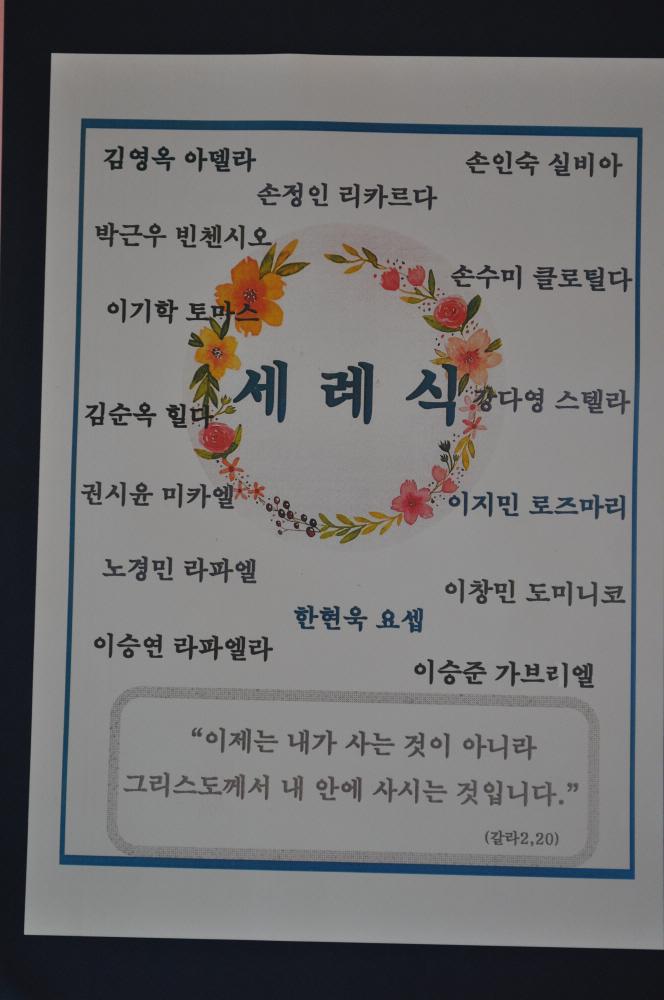 김영옥 아델라
손인숙 실비아
손정인 리카르다
박근우 빈첸시오
손수미 클로틸다
이기학 토마스
세 례 식
강다영 스텔라
김순옥 힐다
권시윤 미카엘
이지민 로즈마리
노경민 라파엘
이창민 도미니코
한현욱 요셉
이승연 라파엘라
이승준 가브리엘
“이제는 내가 사는 것이 아니라
그리스도께서 내 안에 사시는 것입니다.”
(갈라2,20)